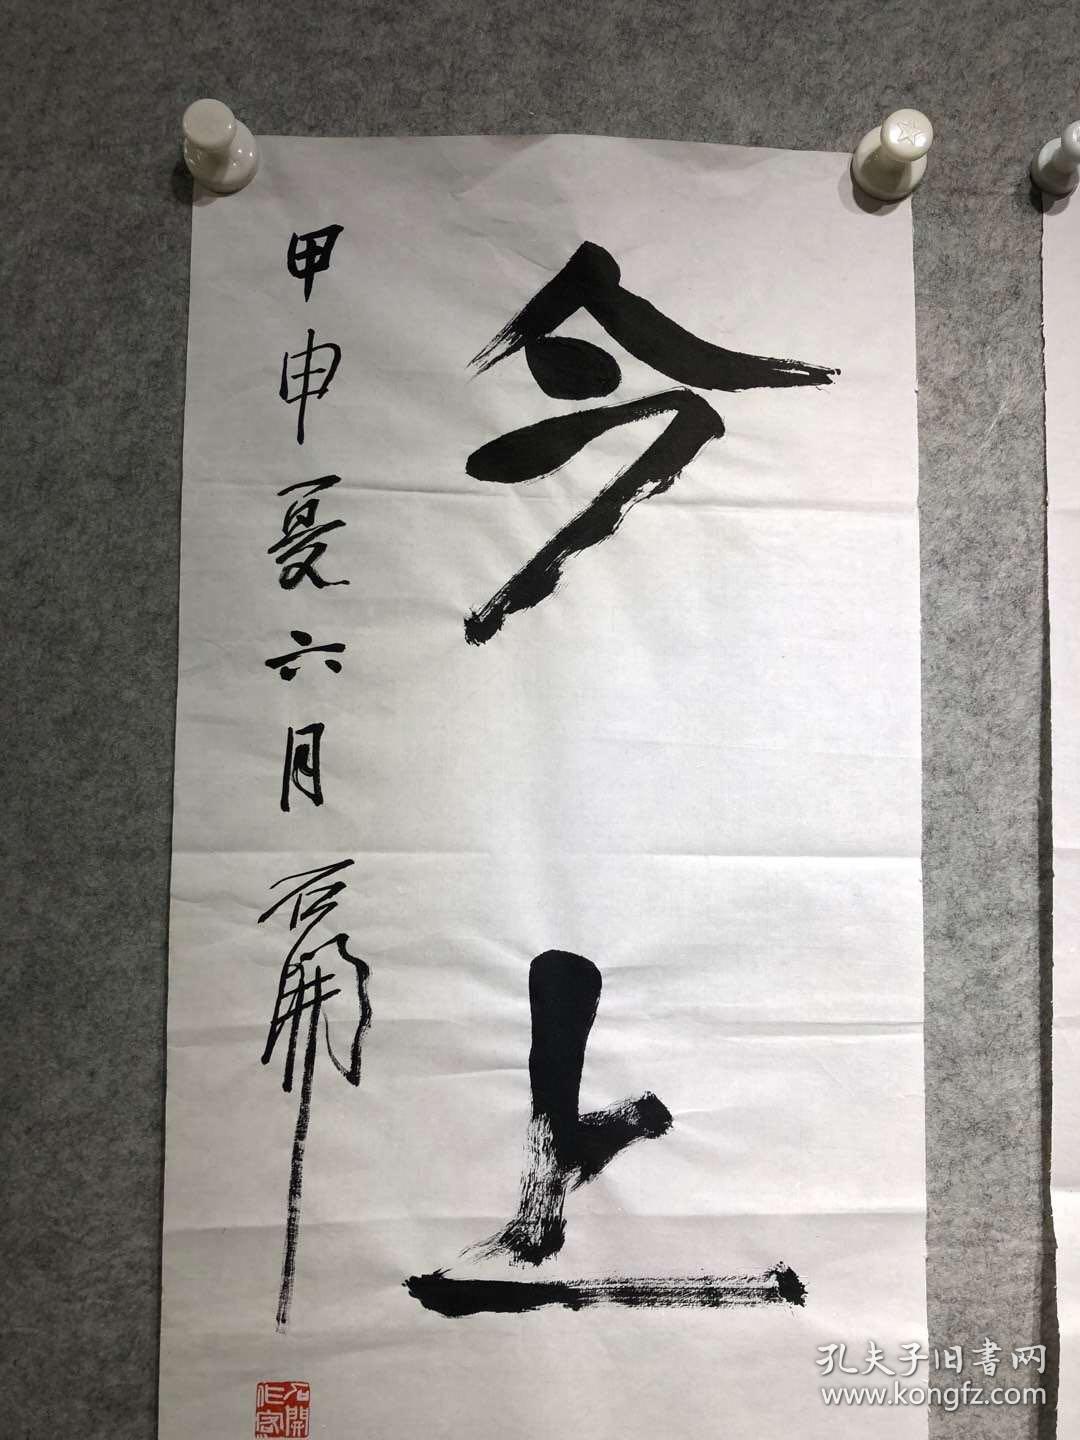 今上
甲申夏六月石開
石開
孔夫子旧書网
www.kongfz.com